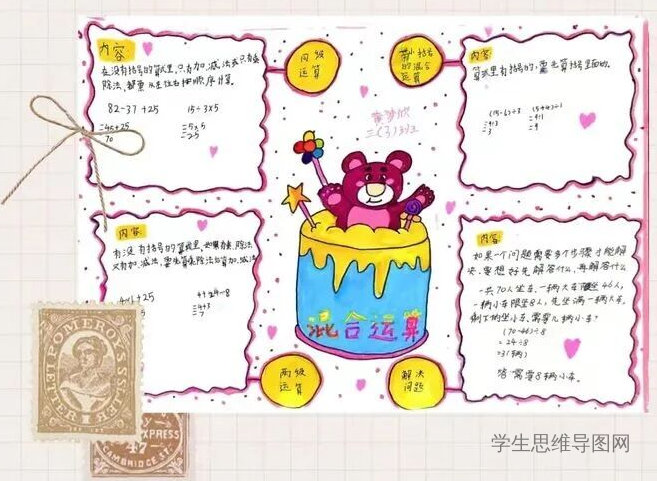 内容
在没有括号的算式里,只有加、减法或只有乘
除法,都要从左往右按顺序计算。
82-37+25
=45+25
=70
15÷3×5
=5×5
=25
同级
运算
带小括号
的混合
运算
内容
算式里有括号的,要先算括号里面的。
=4÷3
=3
内容
在没有括号的算式里,如果有乘、除法
又有加、减法,要先算乘除法后算加、减法
4+24÷8
=4+3
=7
混合运算
两级
运算
解决
问题
内容
如果一个问题需要多个步骤才能解
决,要想好先解答什么,再解答什么
一共70人坐车,一辆大车限坐46人,
一辆小车限坐8人,先坐满一辆大车,
剩下的坐小车,需要几辆小车?
(70-46)÷8
=24÷8
=3(辆)
答:需要3辆小车。
POMEROY'S
LETTER
EXPRESS
CAMBRIDGE ST.
学生思维导图网